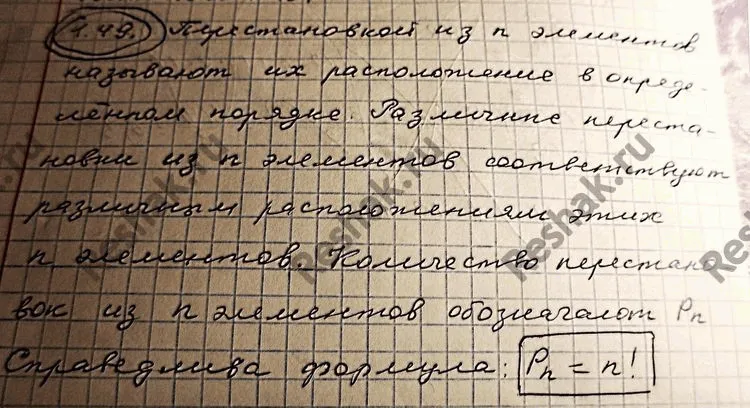 1.49. Перестановкой из n элементов
называют их расположение в опреде-
лённом порядке. Различные переста-
новки из n элементов соответствуют
различным расположениям этих
n элементов. Количество перестано
вок из n элементов обозначают Pn
Справедлива формула: Pn = n!
Reshak.ru
Reshak.ru
Reshak.ru